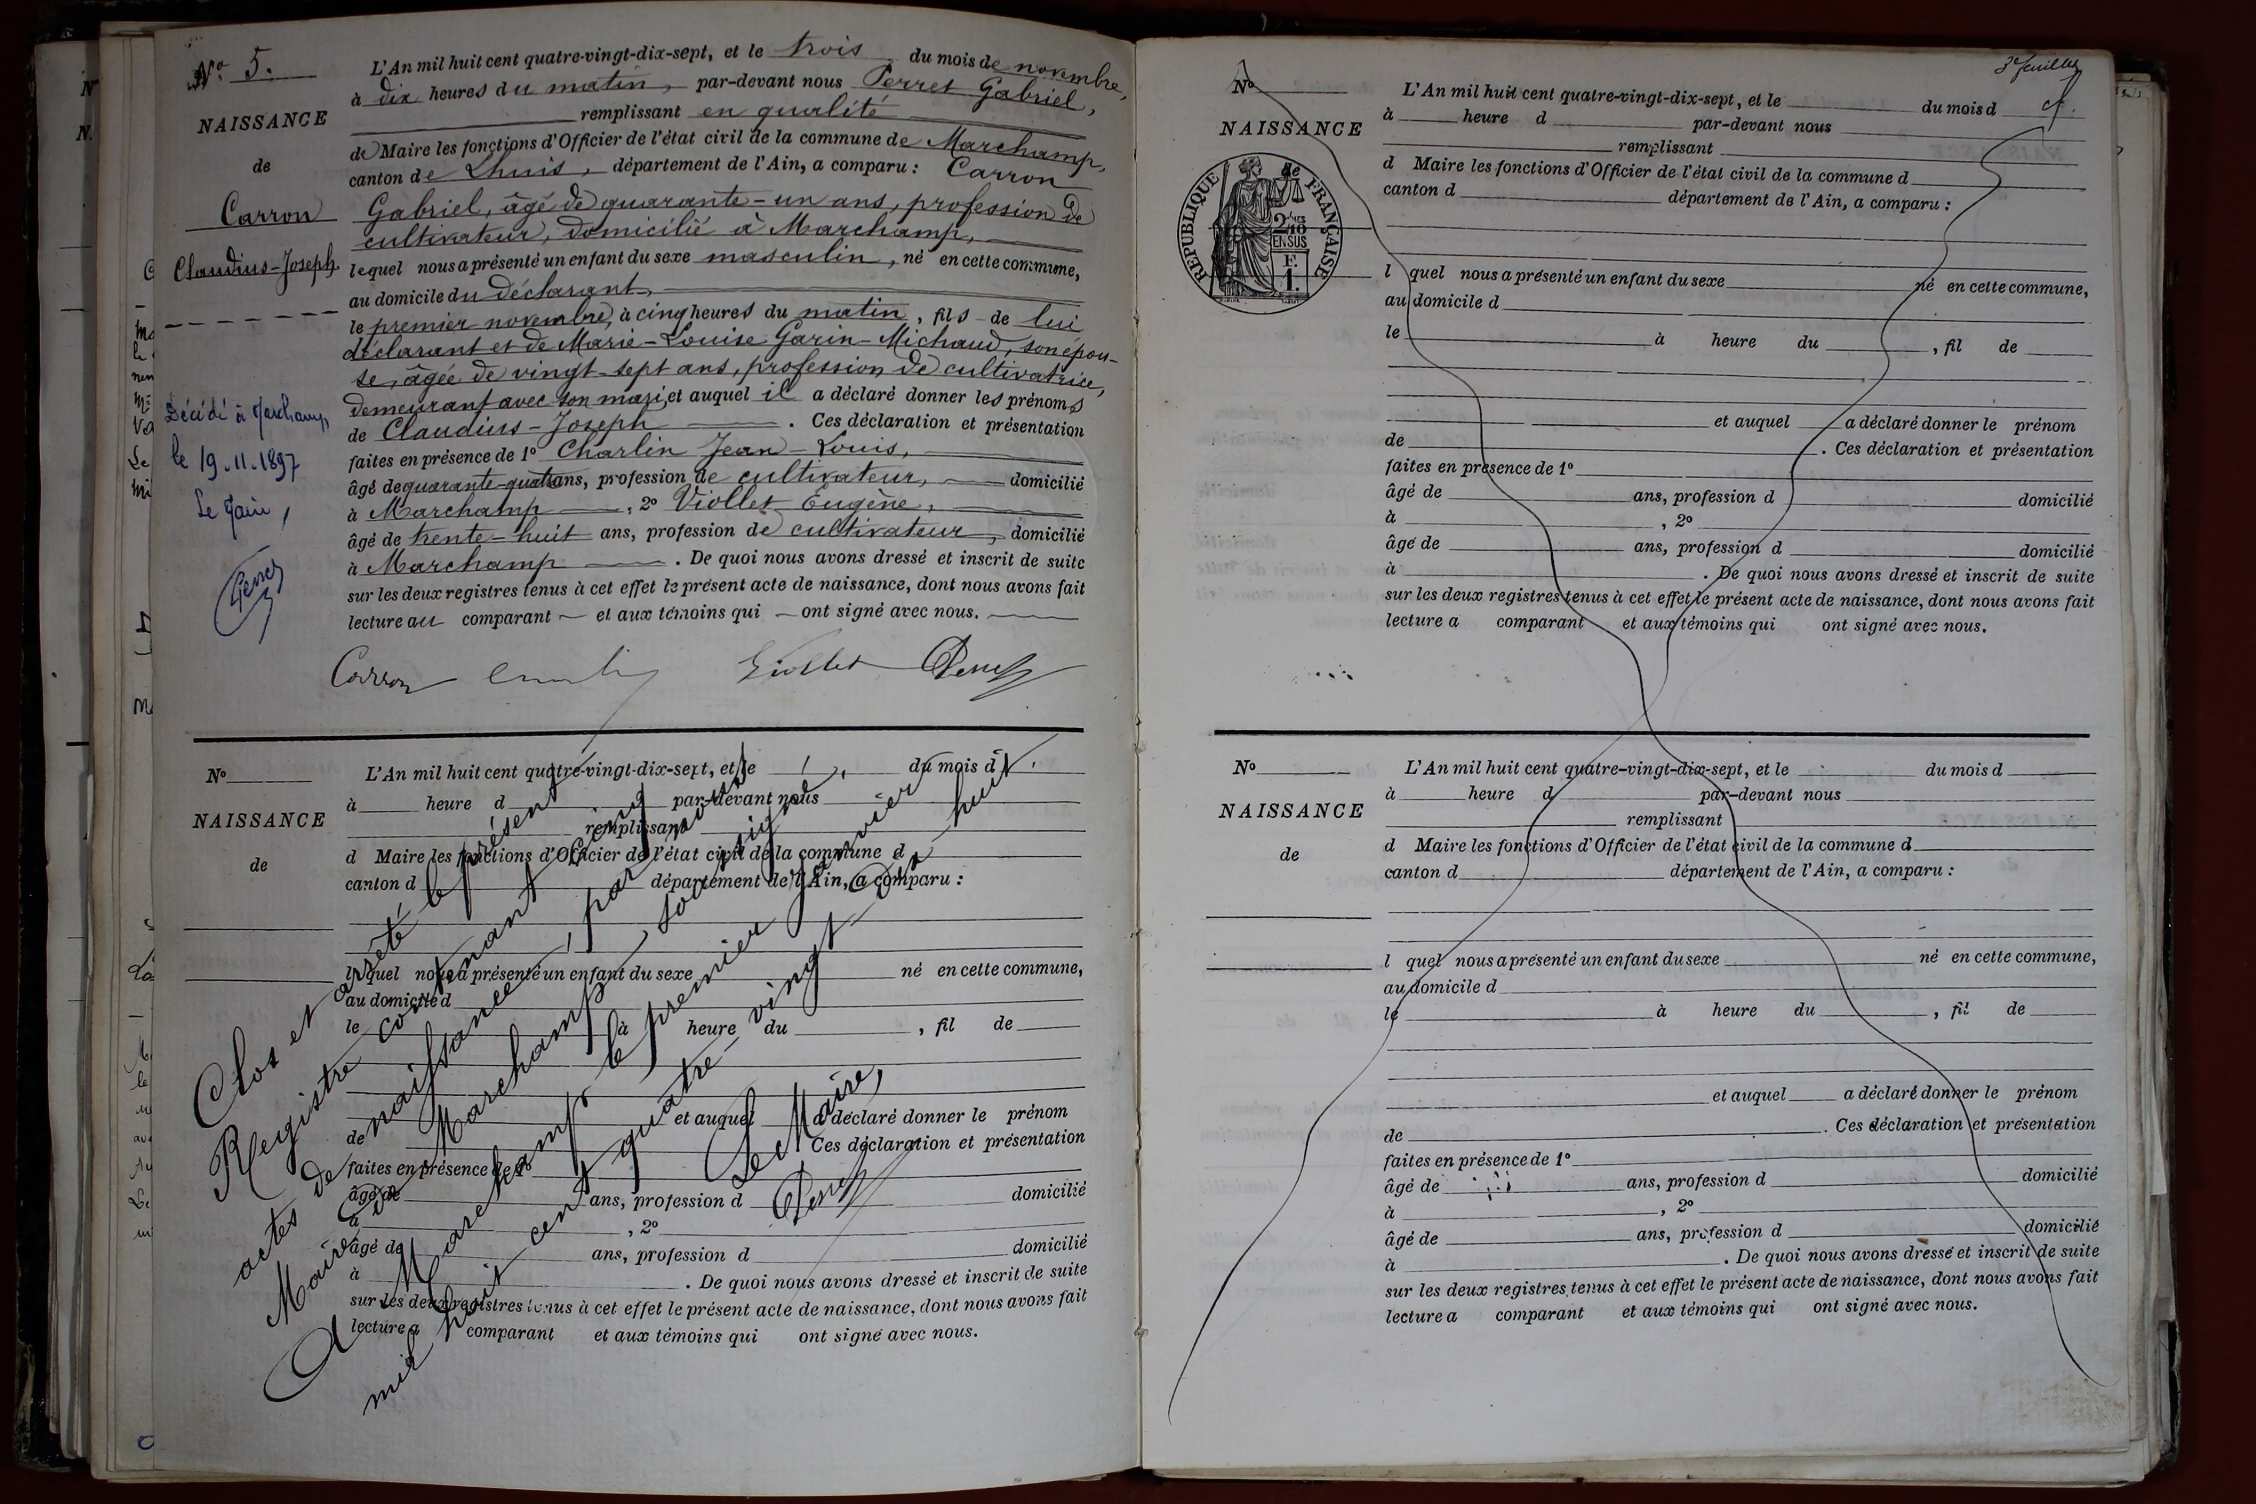 No 5.
NAISSANCE
de
Carron
Claudius-Joseph
Décédé à Marchamp
le 19.11.1897
Le Maire,
Perret
L'An mil huit cent quatre-vingt-dix-sept, et le trois du mois de novembre,
à dix heures du matin, par-devant nous Perret Gabriel,
remplissant en qualité
de Maire les fonctions d'Officier de l'état civil de la commune de Marchamp,
canton de Lhuis, département de l'Ain, a comparu : Carron
Gabriel, âgé de quarante-un ans, profession de
cultivateur, domicilié à Marchamp,
lequel nous a présenté un enfant du sexe masculin, né en cette commune,
au domicile du déclarant,
le premier novembre, à cinq heures du matin, fils de lui
déclarant et de Marie-Louise Garin-Michaud, son épou-
se, âgée de vingt-sept ans, profession de cultivatrice,
demeurant avec son mari, et auquel il a déclaré donner les prénoms
de Claudius-Joseph . Ces déclaration et présentation
faites en présence de 1º Charlin Jean-Louis,
âgé de quarante-quatre ans, profession de cultivateur, domicilié
à Marchamp , 2º Viollet Eugène,
âgé de trente-huit ans, profession de cultivateur, domicilié
à Marchamp . De quoi nous avons dressé et inscrit de suite
sur les deux registres tenus à cet effet le présent acte de naissance, dont nous avons fait
lecture au comparant et aux témoins qui ont signé avec nous.
Carron Charlin Viollet Perret
No
NAISSANCE
de
L'An mil huit cent quatre-vingt-dix-sept, et le du mois d
à heure d par-devant nous
remplissant
d Maire les fonctions d'Officier de l'état civil de la commune d
canton d département de l'Ain, a comparu :
l quel nous a présenté un enfant du sexe né en cette commune,
au domicile d
le à heure du , fil de
et auquel a déclaré donner le prénom
de Ces déclaration et présentation
faites en présence de 1º
âgé de ans, profession d domicilié
à , 2º
âgé de ans, profession d domicilié
à . De quoi nous avons dressé et inscrit de suite
sur les deux registres tenus à cet effet le présent acte de naissance, dont nous avons fait
lecture a comparant et aux témoins qui ont signé avec nous.
Clos et arrêté le présent
Registre contenant cinq
actes de naissance, par nous
Maire de Marchamp, soussigné
A Marchamp le premier janvier
mil huit cent quatre-vingt-dix-huit
Le Maire,
Perret
3e feuillet
No
NAISSANCE
RÉPUBLIQUE FRANÇAISE
2/10
EN SUS
F.
1.
L'An mil huit cent quatre-vingt-dix-sept, et le du mois d
à heure d par-devant nous
remplissant
d Maire les fonctions d'Officier de l'état civil de la commune d
canton d département de l'Ain, a comparu :
l quel nous a présenté un enfant du sexe né en cette commune,
au domicile d
le à heure du , fil de
et auquel a déclaré donner le prénom
de . Ces déclaration et présentation
faites en présence de 1º
âgé de ans, profession d domicilié
à , 2º
âgé de ans, profession d domicilié
à . De quoi nous avons dressé et inscrit de suite
sur les deux registres tenus à cet effet le présent acte de naissance, dont nous avons fait
lecture a comparant et aux témoins qui ont signé avec nous.
No
NAISSANCE
de
L'An mil huit cent quatre-vingt-dix-sept, et le du mois d
à heure d par-devant nous
remplissant
d Maire les fonctions d'Officier de l'état civil de la commune d
canton d département de l'Ain, a comparu :
l quel nous a présenté un enfant du sexe né en cette commune,
au domicile d
le à heure du , fil de
et auquel a déclaré donner le prénom
de . Ces déclaration et présentation
faites en présence de 1º
âgé de ans, profession d domicilié
à , 2º
âgé de ans, profession d domicilié
à . De quoi nous avons dressé et inscrit de suite
sur les deux registres tenus à cet effet le présent acte de naissance, dont nous avons fait
lecture a comparant et aux témoins qui ont signé avec nous.